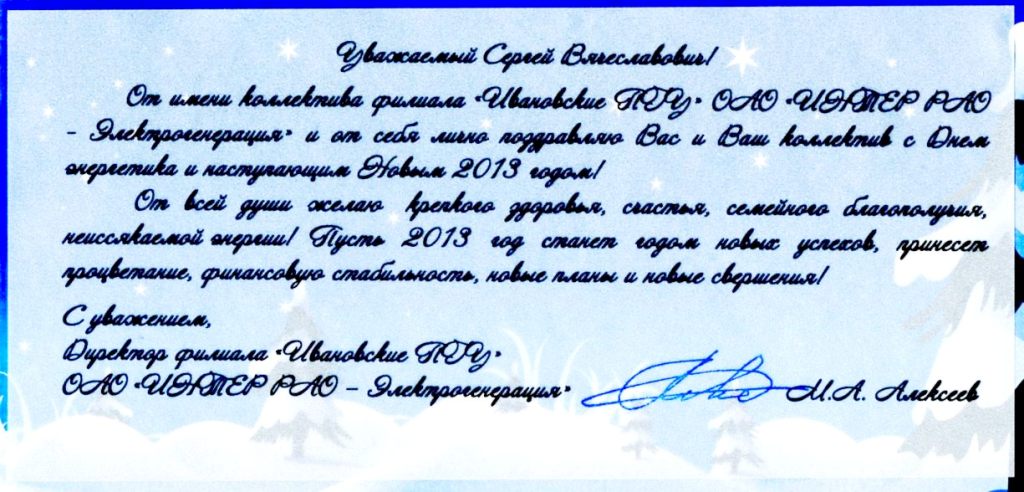 Уважаемый Сергей Вячеславович!
От имени коллектива филиала «Ивановские ПГУ» ОАО «ИНТЕР РАО
– Электрогенерация» и от себя лично поздравляю Вас и Ваш коллектив с Днем
энергетика и наступающим Новым 2013 годом!
От всей души желаю крепкого здоровья, счастья, семейного благополучия,
неиссякаемой энергии! Пусть 2013 год станет годом новых успехов, принесет
процветание, финансовую стабильность, новые планы и новые свершения!
С уважением,
Директор филиала «Ивановские ПГУ»
ОАО «ИНТЕР РАО – Электрогенерация» М.А. Алексеев